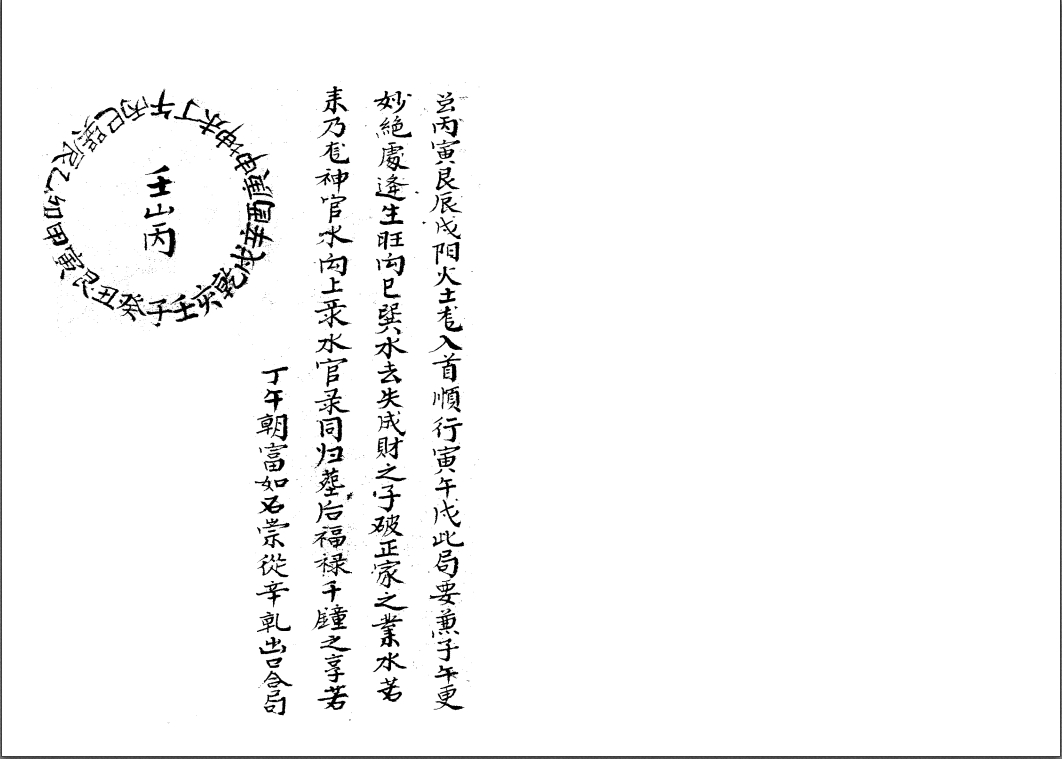 丙寅艮辰戌阳火土龙入首順行寅午戌此局要兼子午更
妙絶處逢生旺向巳巽水去失成財之子破正家之業水若
来乃龙神官水向上录水官录同归墓后福禄千鐘之享若
丁午朝富如石崇從辛乹出口合局
壬山丙
丙午丁未坤申庚酉辛戌乾亥壬子癸丑艮寅甲卯乙辰巽巳